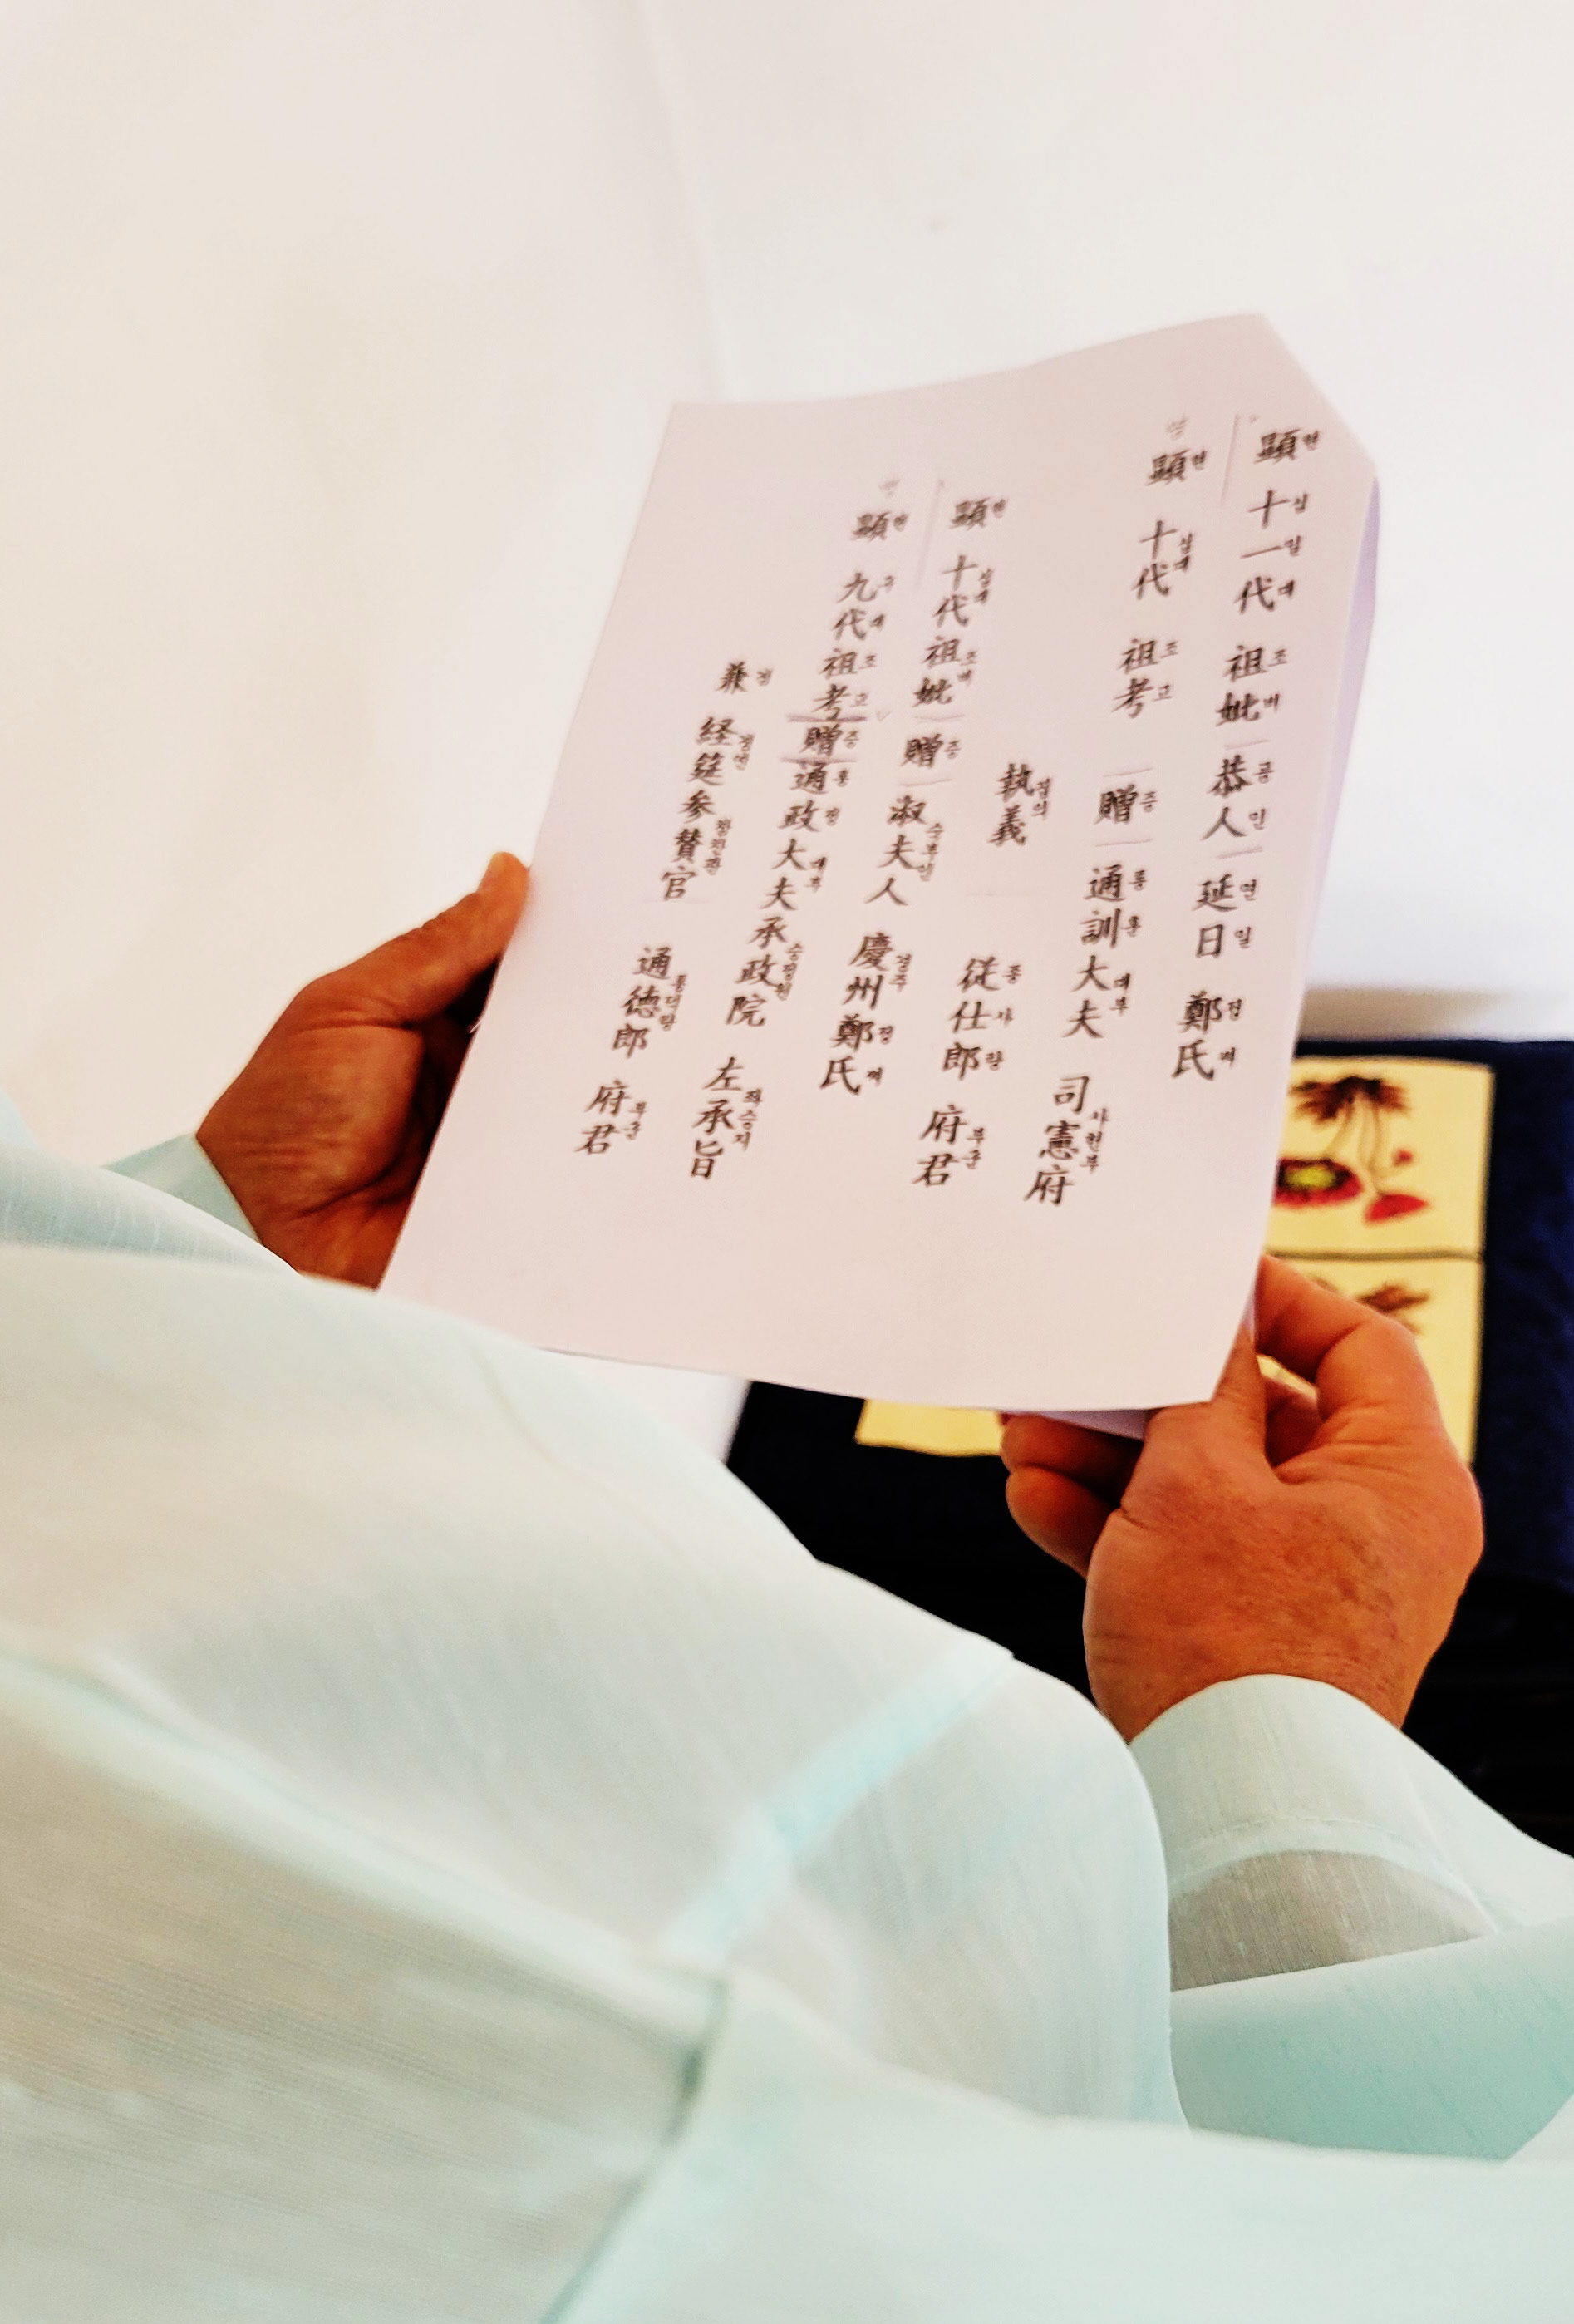 顯현 十십一일代대 祖조妣비 恭공人인 延연日일 鄭정氏씨
顯현 十代십대 祖조考고 贈증 通통訓훈大夫대부 司憲府사헌부
執義집의 従종仕사郎랑 府君부군
顯현 十代십대祖조妣비 贈증 淑夫人숙부인 慶州경주鄭정氏씨
顯현 九구代대祖조考고贈증通통政정大夫대부承政院승정원 左承旨좌승지
兼겸 経筵경연参賛官참찬관 通徳郎통덕랑 府君부군